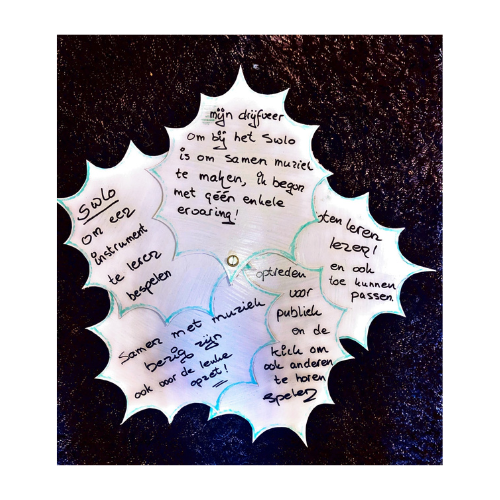 mijn drijfveer
om bij het Swlo
is om samen muziek
te maken, ik begon
met géén enkele
ervaring!
Swlo
om een
instrument
te leren
bespelen
ten leren
lezen!
en ook
toe kunnen
passen.
optreden
voor
publiek
en de
kick om
ook anderen
te horen
spelen
Samen met muziek
bezig zijn
ook voor de leuke
opzet!